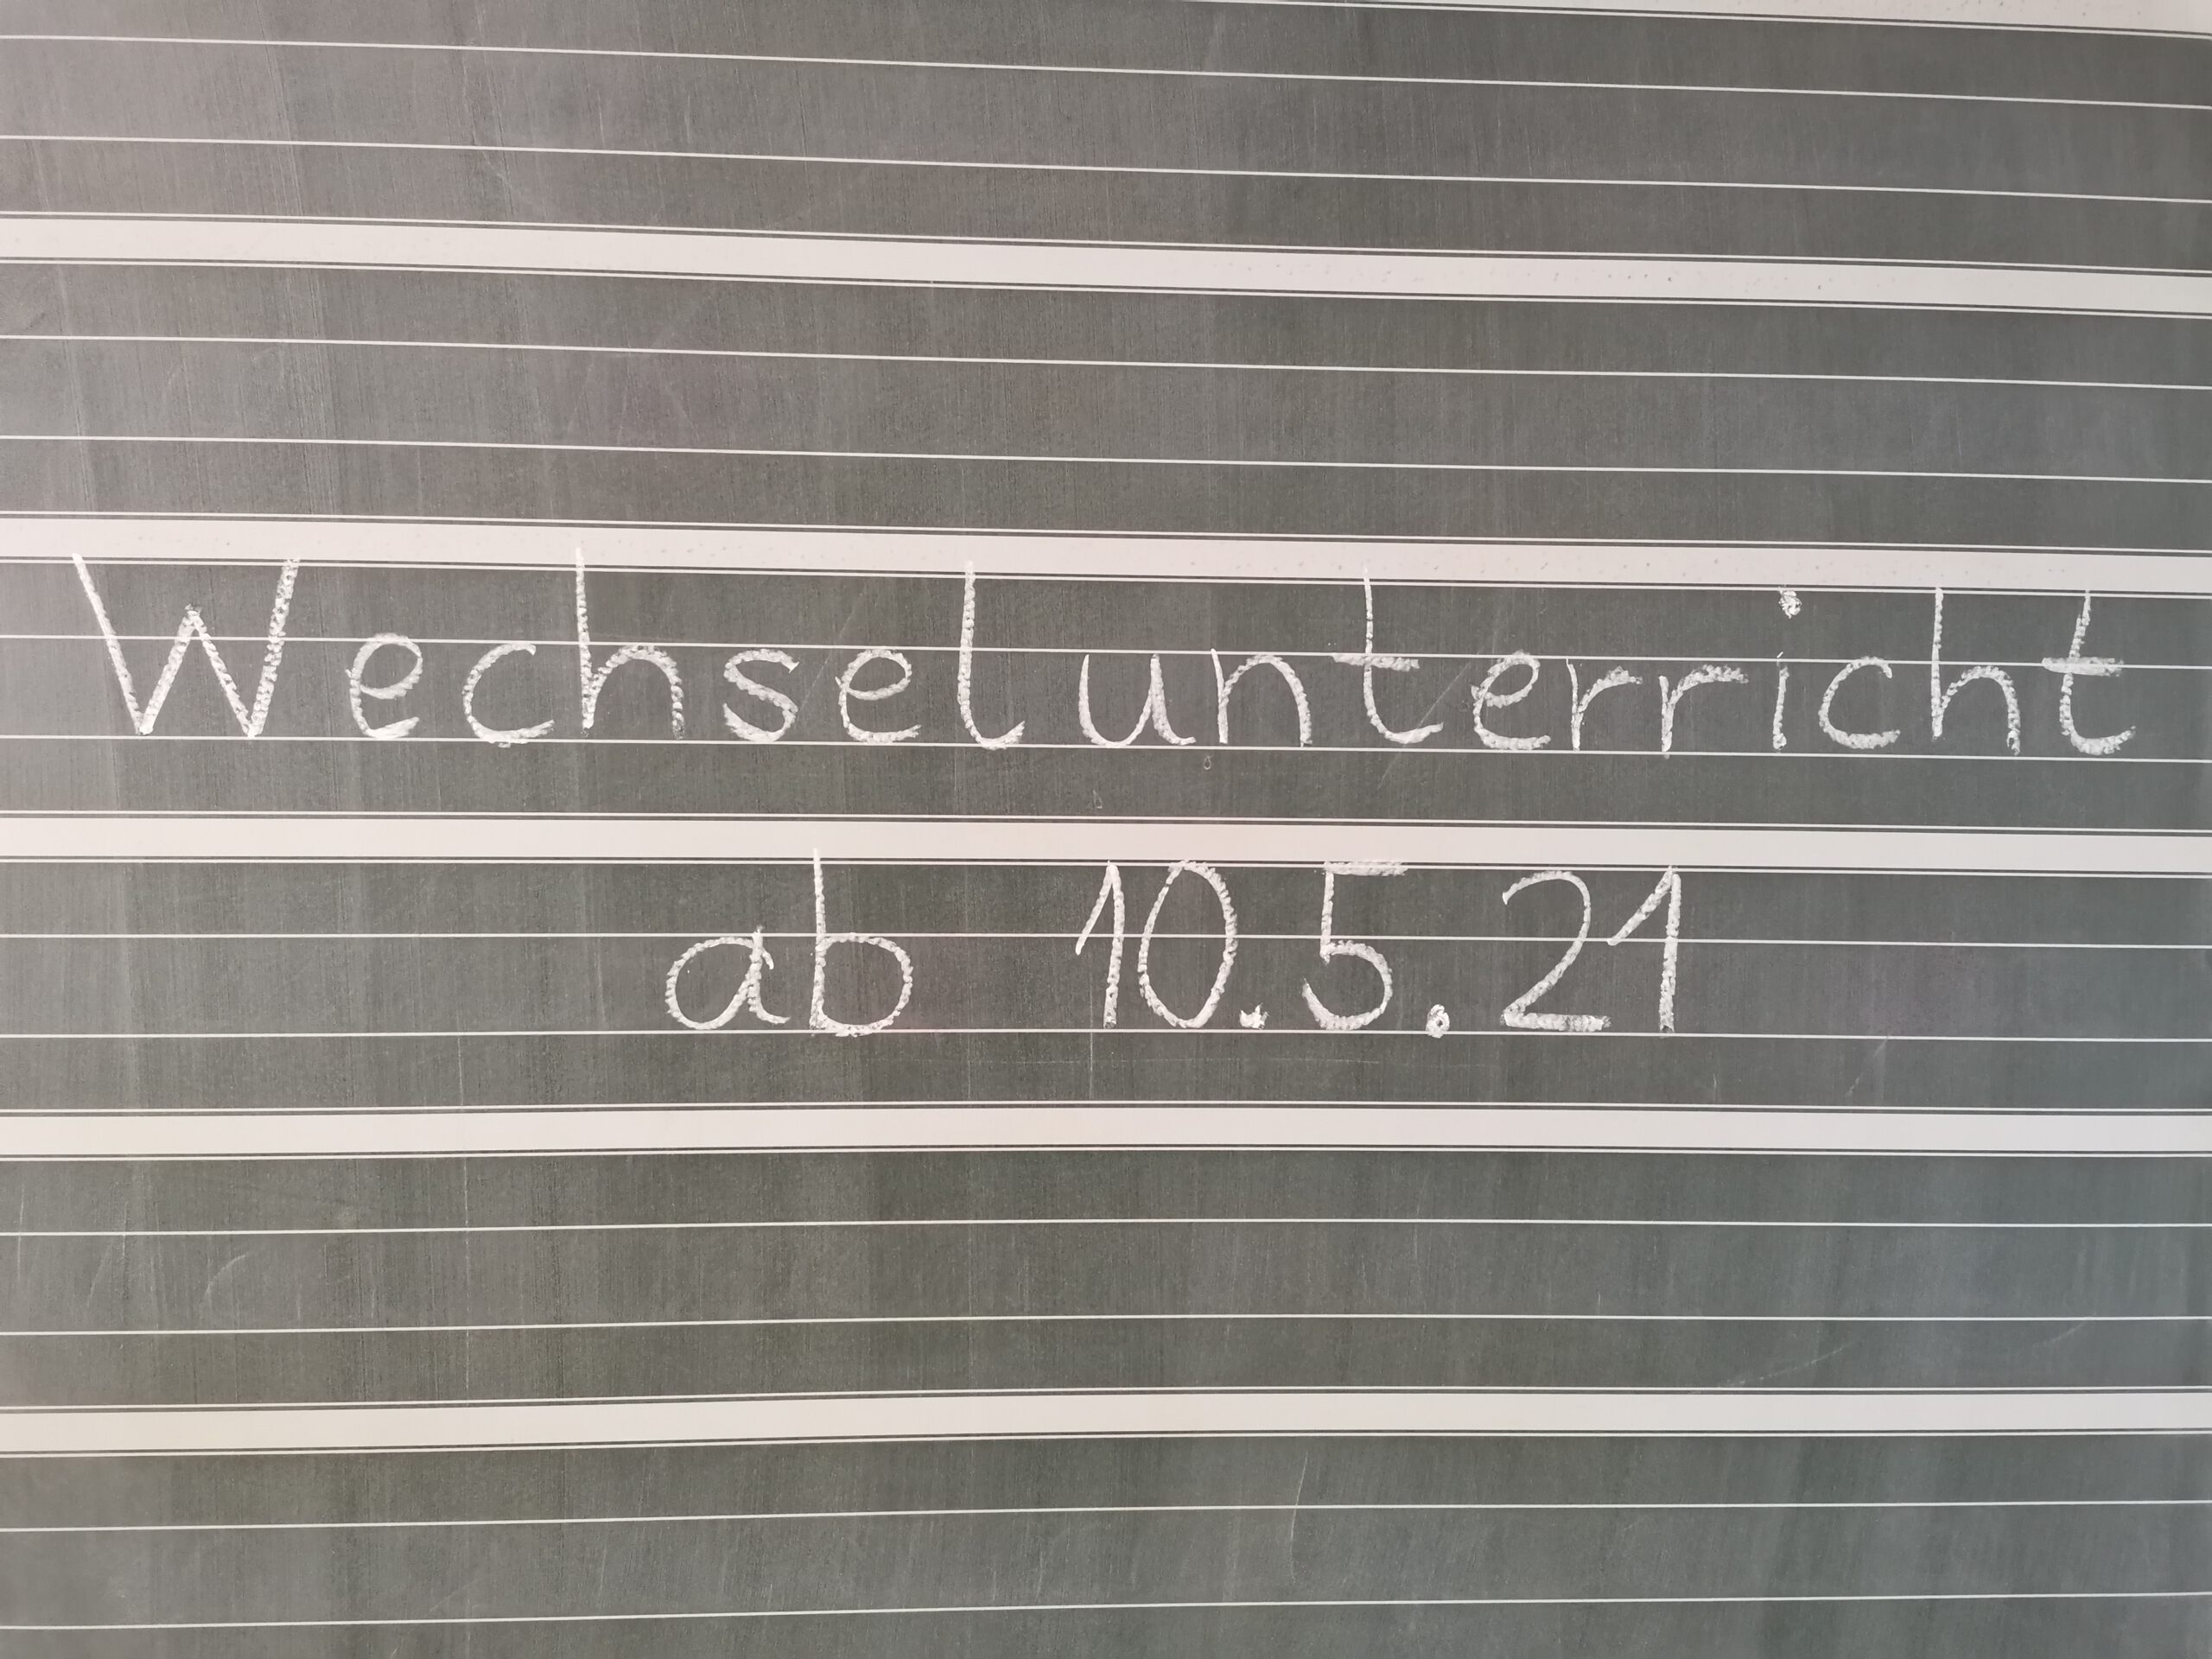 Wechselunterricht
ab 10.5.21